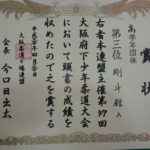 賞状
高学年団体
第三位 剛斗館A
右者本連盟主催第37回
大阪府下少年柔道大会
において頭書の成績を
収めたので之を賞する
平成 年四月 日
大阪柔道 連盟
会長 今口日出太